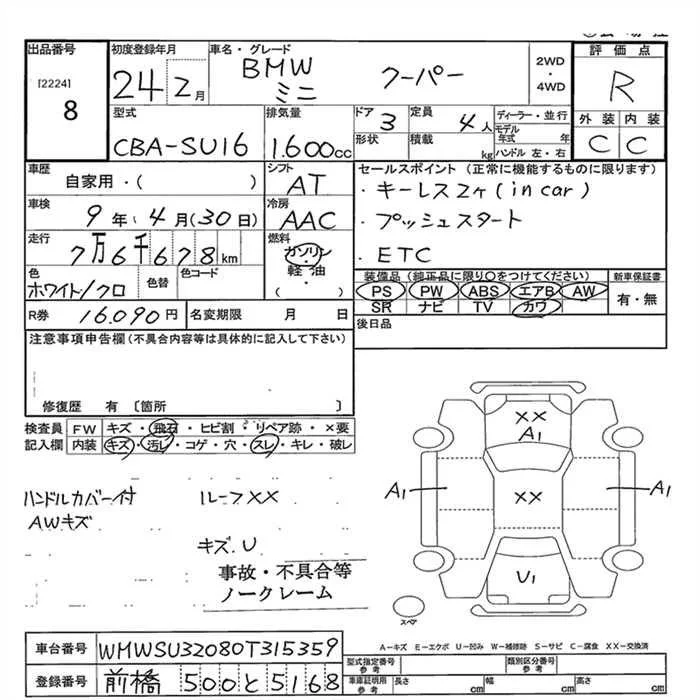 出品番号 初度登録年月 車名・グレード 2WD・4WD 評価点
[2224] 8 24 2月 BMW ミニ クーパー R
型式 排気量 ドア 定員 ディーラー・並行 外装 内装
CBA-SU16 1.600cc 3 4人 モデル年式 年 C C
形状 積載 kg ハンドル 左・右
車歴 シフト セールスポイント (正常に機能するものに限ります)
自家用・( ) AT ・キーレス2ヶ(in car)
車検 冷房 ・プッシュスタート
9年 4月(30日) AAC ・ETC
走行 燃料
7万6千678km ガソリン・軽油・( )
装備品 (純正品に限り○をつけてください) 新車保証書
色 色替 色コード PS PW ABS エアB AW 有・無
ホワイト/クロ SR ナビ TV カワ
R券 16.090円 名変期限 月 日 後日品
注意事項申告欄(不具合内容等は具体的に記入して下さい)
修復歴 有 〔箇所 〕
検査員 FW キズ・飛石・ヒビ割・リペア跡・×要
記入欄 内装 キズ・汚レ・コゲ・穴・スレ・キレ・破レ
XX
A1
ハンドルカバー付 ルーフXX A1 XX A1
AWキズ
キズ.U
事故・不具合等 U1
ノークレーム
スペア
車台番号 WMWSU32080T315359 A-キズ E-エクボ U-凹み W-補修跡 S-サビ C-腐食 XX-交換済
型式指定番号 参考 類別区分番号 参考
登録番号 前橋 500と5168 車庫証明用 参考 長さ cm 幅 cm 高さ cm